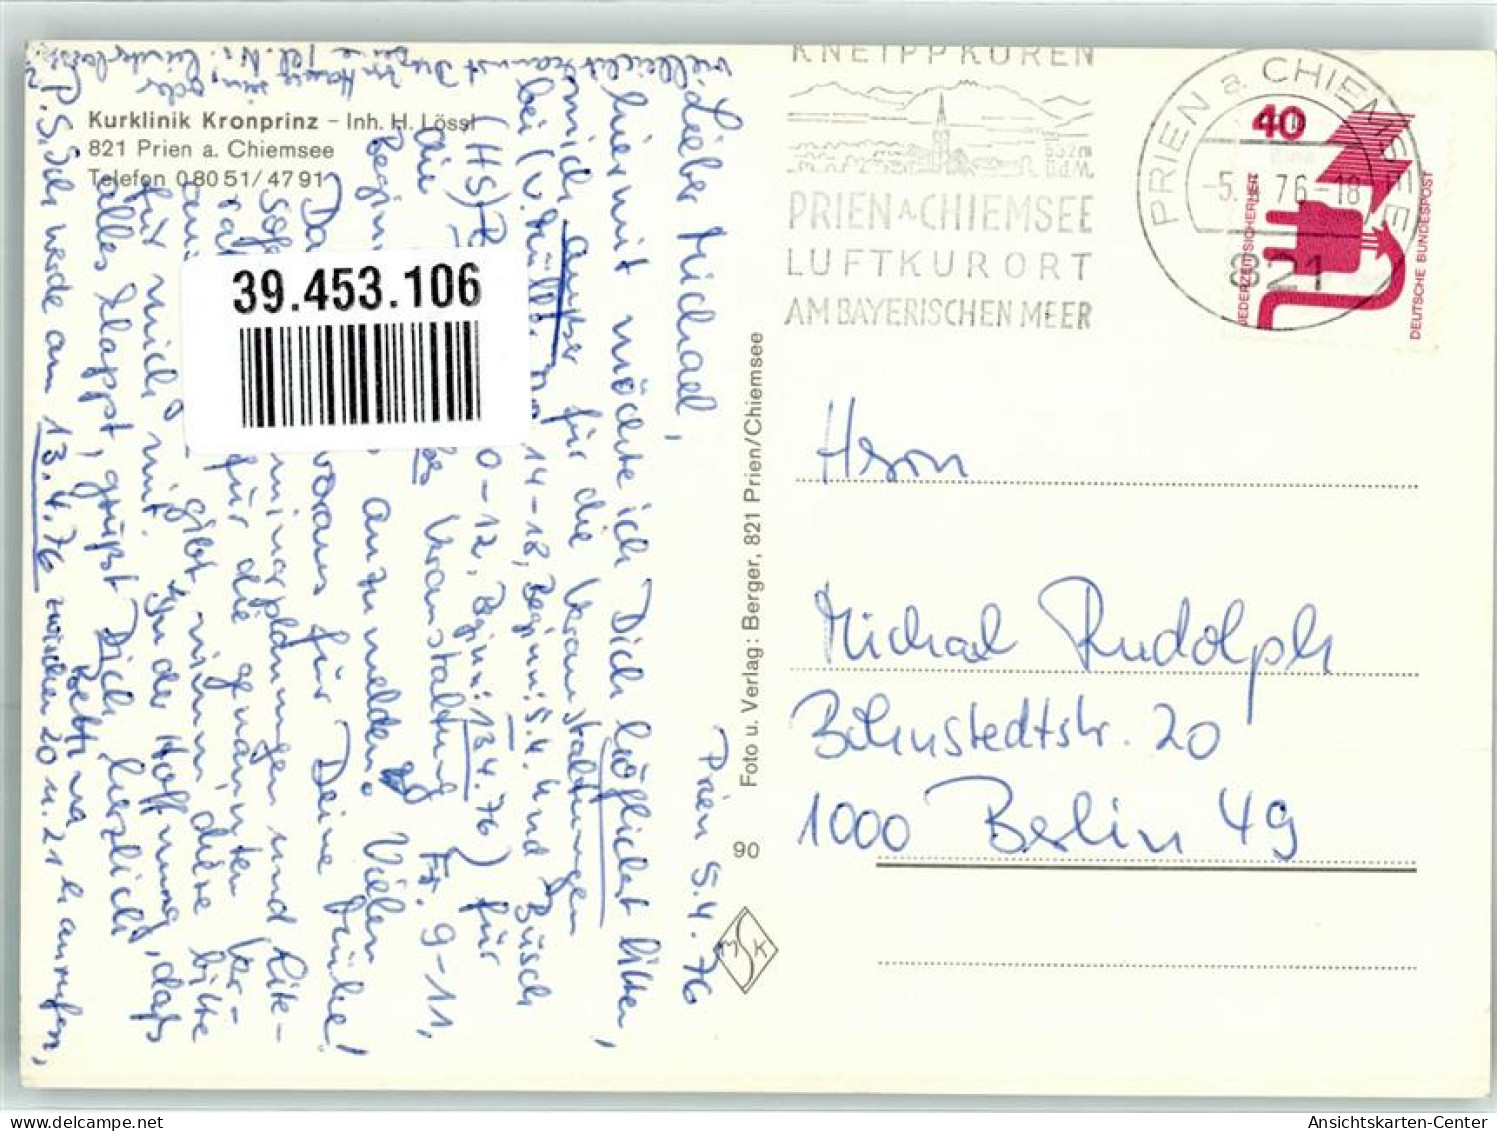 Kurklinik Kronprinz – Inh. H. Lössl
821 Prien a. Chiemsee
Telefon 08051/4791
39.453.106
Prien 5.4.76
Lieber Michael,
hiermit möchte ich Dich höflichst bitten,
mich außer für die Veranstaltungen
bei (v. Müll. 14-18, Beginn: 5.4. und Büsch
(HS) 0-12, Beginn: 13.4.76) für
die Veranstaltung Fr. 9-11,
Begin anzumelden. Vielen
Da voraus für Deine Mühe!
für die genannten Ver-
gibt, nimm diese bitte
für mich mit. In der Hoffnung, daß
alles klappt, grüßt Dich herzlich
Bettina
P.S. Ich werde am 13.4.76 zwischen 20 u. 21 h anrufen,
vielleicht kannst Du
KNEIPPKUREN
532m
ü.d.M.
PRIEN A. CHIEMSEE
LUFTKURORT
AM BAYERISCHEN MEER
PRIEN a. CHIEMSEE
-5. 76-18
821
40
JEDERZEIT SICHERHEIT
DEUTSCHE BUNDESPOST
Foto u. Verlag: Berger, 821 Prien/Chiemsee
90
MSK
Herrn
Michael Rudolph
Bohnstedtstr. 20
1000 Berlin 49
Ansichtskarten-Center
delcampe.net